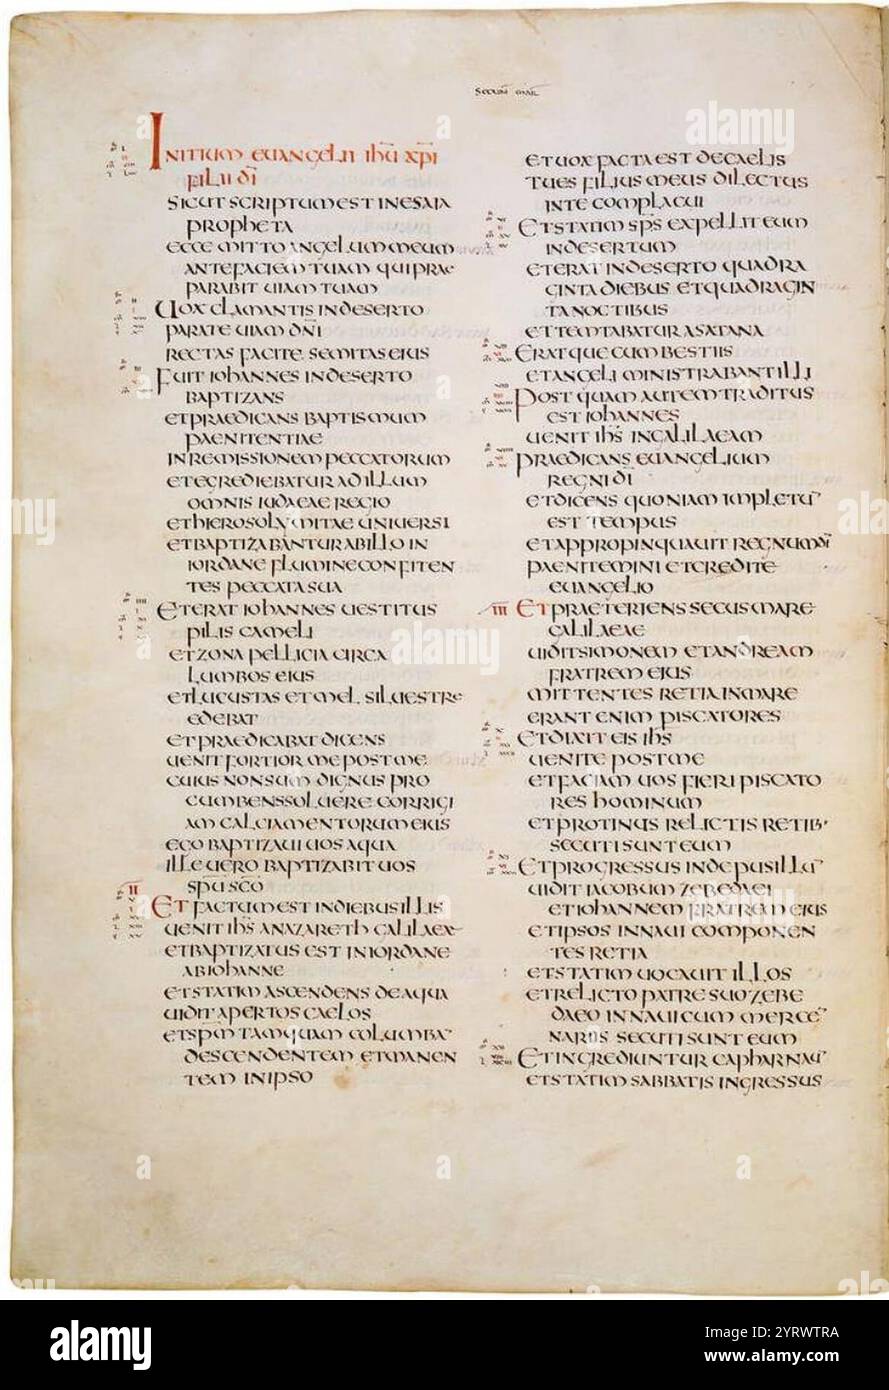 SECUN̄ MAR̄
INITIUM EUANGELII IHŪ XPĪ
FILII DĪ
SICUT SCRIPTUM EST IN ESAIA
PROPHETA
ECCE MITTO ANGELUM MEUM
ANTE FACIEM TUAM QUI PRAE
PARABIT UIAM TUAM
UOX CLAMANTIS IN DESERTO
PARATE UIAM DN̄I
RECTAS FACITE SEMITAS EIUS
FUIT IOHANNES IN DESERTO
BAPTIZANS
ET PRAEDICANS BAPTISMUM
PAENITENTIAE
IN REMISSIONEM PECCATORUM
ET EGREDIEBATUR AD ILLUM
OMNIS IUDAEAE REGIO
ET HIEROSOLYMITAE UNIUERSI
ET BAPTIZABANTUR AB ILLO IN
IORDANE FLUMINE CONFITEN
TES PECCATA SUA
ET ERAT IOHANNES UESTITUS
PILIS CAMELI
ET ZONA PELLICIA CIRCA
LUMBOS EIUS
ET LUCUSTAS ET MEL SILUESTRE
EDEBAT
ET PRAEDICABAT DICENS
UENIT FORTIOR ME POST ME
CUIUS NON SUM DIGNUS PRO
CUMBENS SOLUERE CORRIGI
AM CALCIAMENTORUM EIUS
EGO BAPTIZAUI UOS AQUA
ILLE UERO BAPTIZABIT UOS
SPŪ SC̄O
II ET FACTUM EST IN DIEBUS ILLIS
UENIT IHS̄ A NAZARETH GALILAEAE
ET BAPTIZATUS EST IN IORDANE
AB IOHANNE
ET STATIM ASCENDENS DE AQUA
UIDIT APERTOS CAELOS
ET SPM̄ TAMQUAM COLUMBA
DESCENDENTEM ET MANEN
TEM IN IPSO
ET UOX FACTA EST DE CAELIS
TU ES FILIUS MEUS DILECTUS
IN TE COMPLACUI
ET STATIM SPS̄ EXPELLIT EUM
IN DESERTUM
ET ERAT IN DESERTO QUADRA
GINTA DIEBUS ET QUADRAGIN
TA NOCTIBUS
ET TEMTABATUR A SATANA
ERATQUE CUM BESTIIS
ET ANGELI MINISTRABANT ILLI
POST QUAM AUTEM TRADITUS
EST IOHANNES
UENIT IHS̄ IN GALILAEAM
PRAEDICANS EUANGELIUM
REGNI DĪ
ET DICENS QUONIAM IMPLETŪ
EST TEMPUS
ET APPROPINQUAUIT REGNUM DĪ
PAENITEMINI ET CREDITE
EUANGELIO
III ET PRAETERIENS SECUS MARE
GALILAEAE
UIDIT SIMONEM ET ANDREAM
FRATREM EIUS
MITTENTES RETIA IN MARE
ERANT ENIM PISCATORES
ET DIXIT EIS IHS̄
UENITE POST ME
ET FACIAM UOS FIERI PISCATO
RES HOMINUM
ET PROTINUS RELICTIS RETIB·
SECUTI SUNT EUM
ET PROGRESSUS INDE PUSILLŪ
UIDIT IACOBUM ZEBEDAEI
ET IOHANNEM FRATREM EIUS
ET IPSOS IN NAUI COMPONEN
TES RETIA
ET STATIM UOCAUIT ILLOS
ET RELICTO PATRE SUO ZEBE
DAEO IN NAUI CUM MERCE
NARIIS SECUTI SUNT EUM
ET INGREDIUNTUR CAPHARNAŪ
ET STATIM SABBATIS INGRESSUS
alamy
Image ID: 2YRWTRA
www.alamy.com